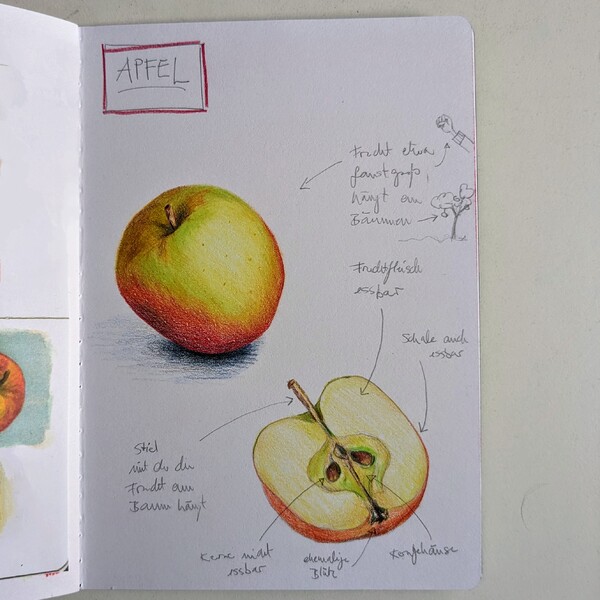 APFEL
Frucht etwa
faustgroß,
hängt an
Bäumen
Fruchtfleisch
essbar
Schale auch
essbar
Stiel
mit du die
Frucht am
Baum hängt
Kerne nicht
essbar
ehemalige
Blüte
Kerngehäuse